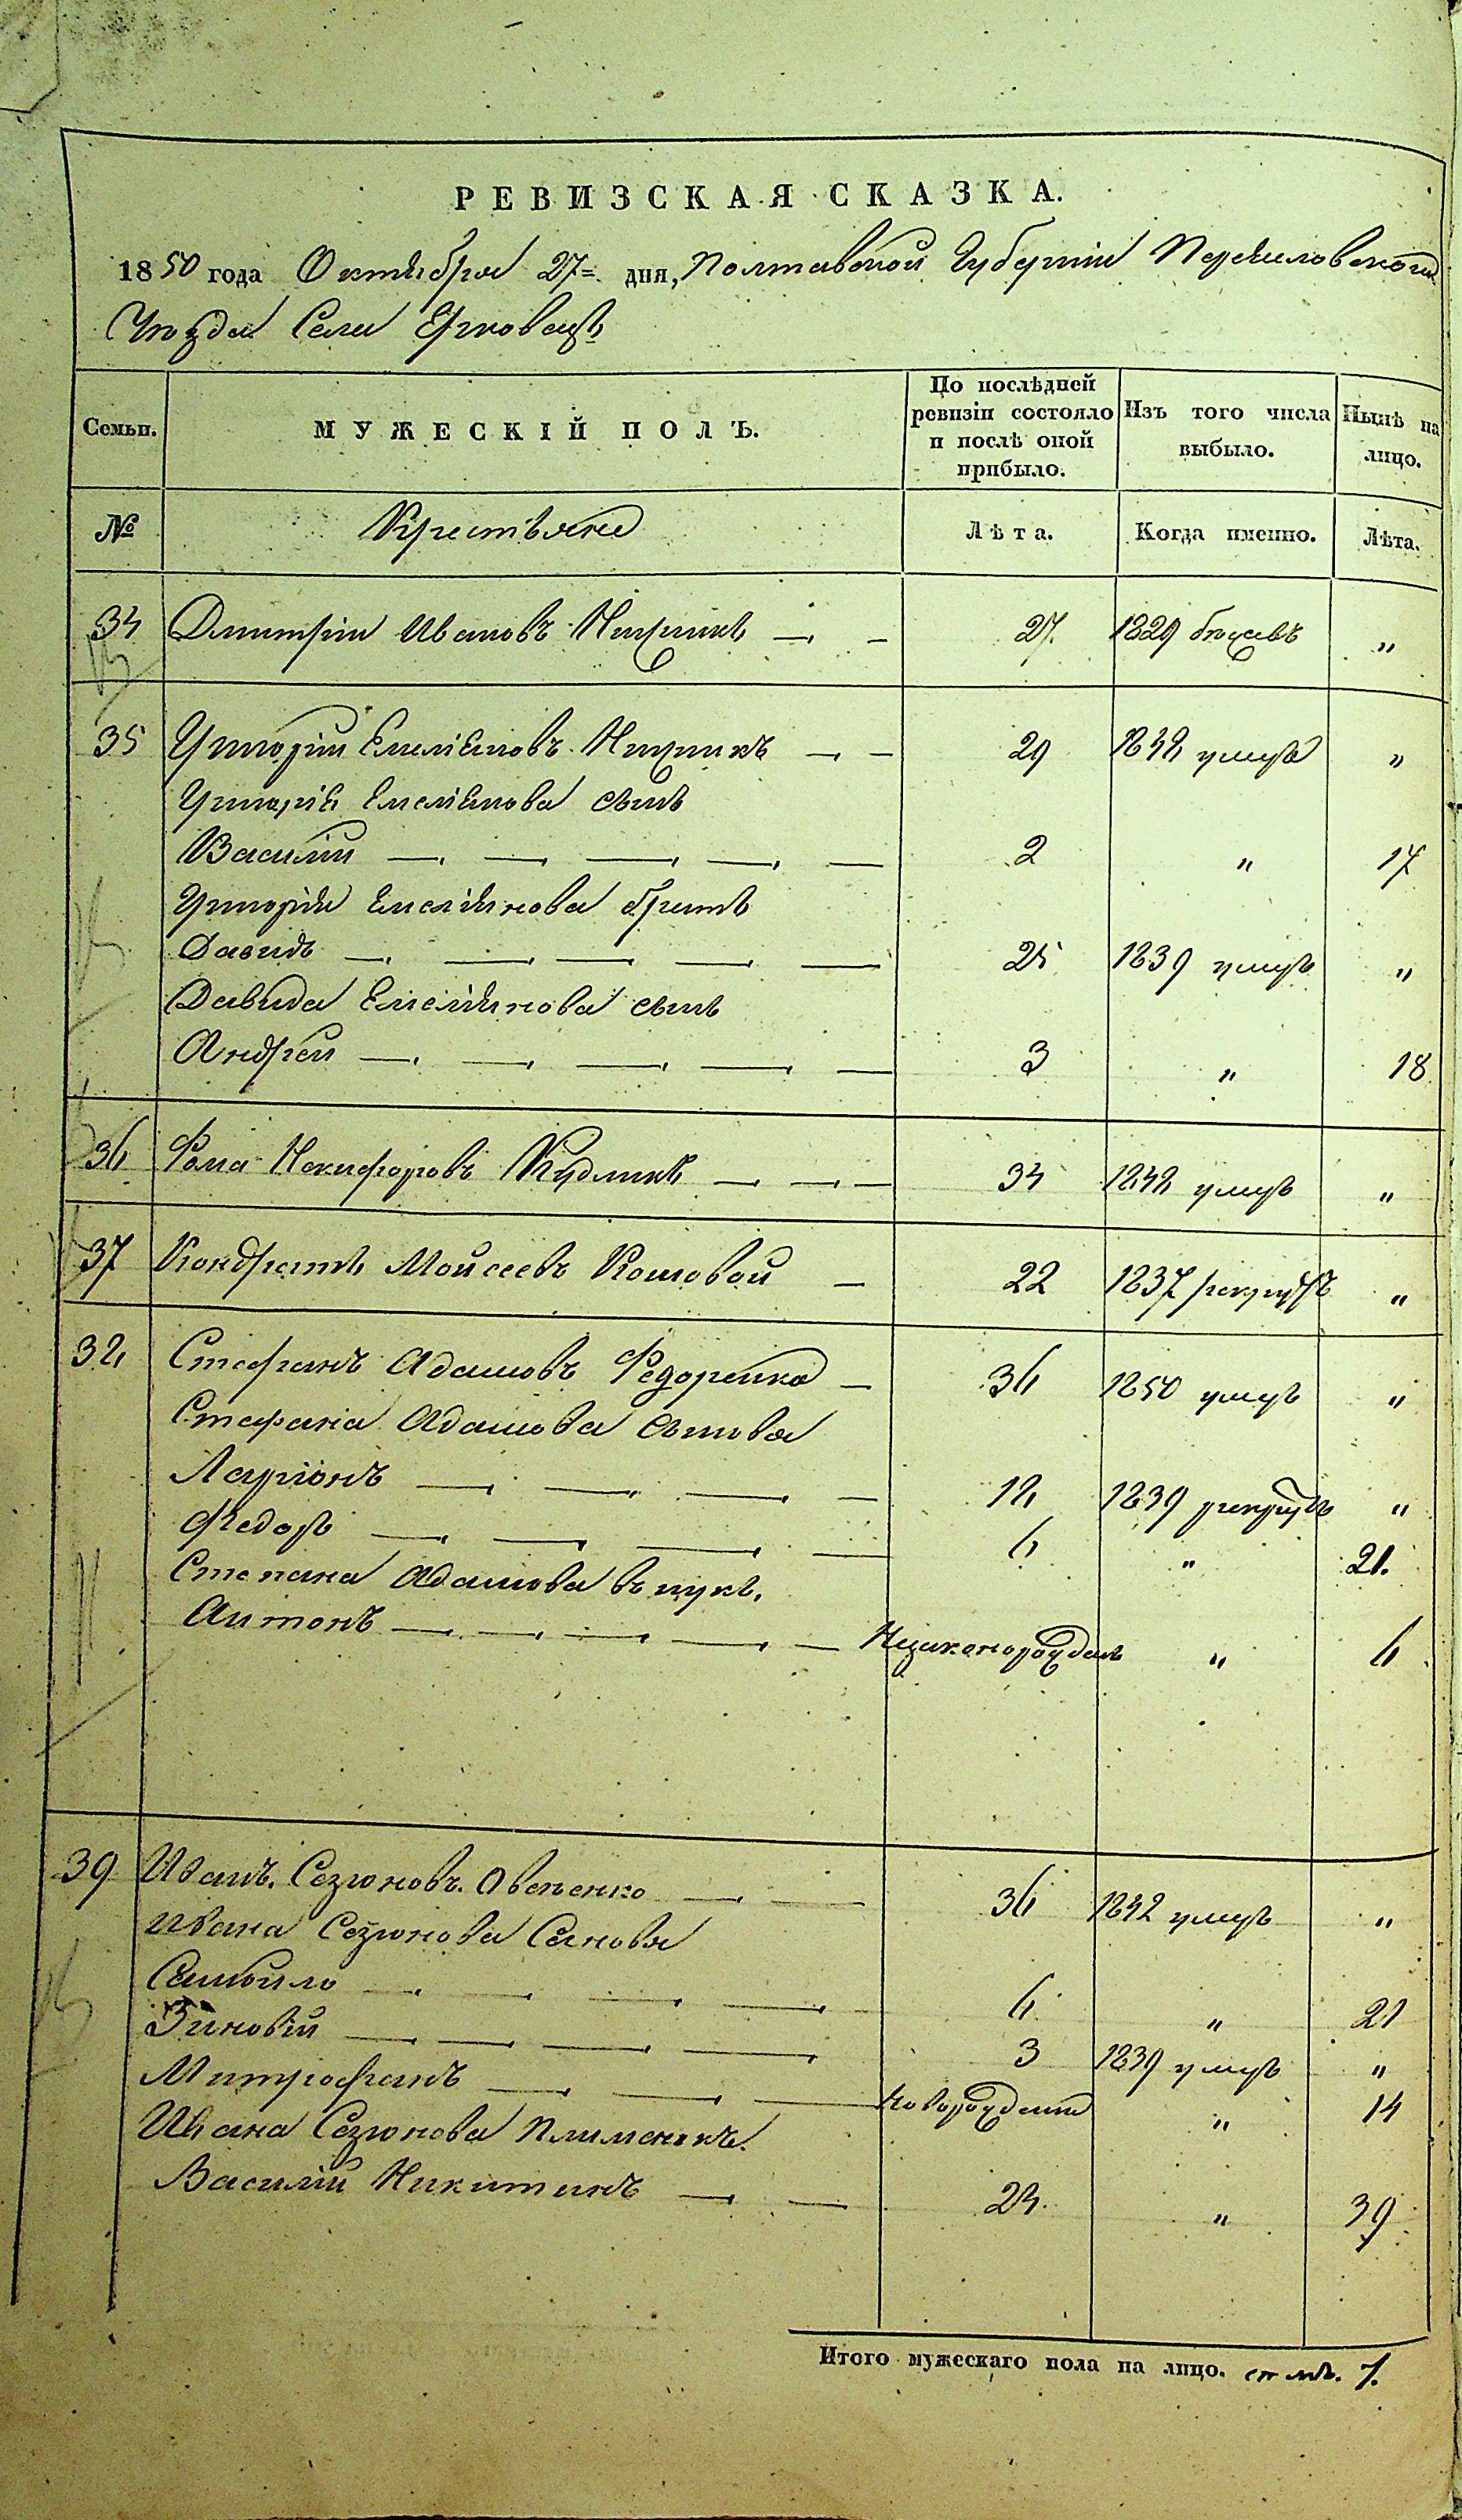 РЕВИЗСКАЯ СКАЗКА.
1850 года Октября 27 дня, Полтавской Губернiи Переяславскаго
Уѣзда Села Ерковецъ
Семьи. МУЖЕСКІЙ ПОЛЪ. По послѣдней ревизіи состояло и послѣ оной прибыло. Изъ того числа выбыло. Нынѣ на лицо.
№ Крестьяне Лѣта. Когда именно. Лѣта.
34 Дмитрiй Ивановъ 27. 1829 „
35 Григорiй Емелiановъ 29 1848 умеръ „
Григорiя Емелiанова сынъ
Василiй 2 „ 17
Григорiя Емелiянова братъ
Давидъ 25 1839 умеръ „
Давида Емелiянова сынъ
Андрей 3 „ 18
36 Фома Никифоровъ Кудликъ 34 1848 умеръ „
37 Кондратъ Мойсеевъ Кошовой 22 1837 рекрутъ „
38 Стефанъ Адамовъ Федоренко 36 1850 умеръ „
Стефана Адамова сыновья
Ларiонъ 18 1839 рекрутъ „
Федоръ 6 „ 21.
Степана Адамова внукъ.
Антонъ „ 6
39 Иванъ. Созоновъ. Овсенко 36 1842 умеръ „
Ивана Созонова Сыновья
Самойло 6 „ 21
Зиновiй 3 1839 умеръ „
Митрофанъ Новорожденъ „ 14
Ивана Созонова племеникъ.
Василiй Никитинъ 24. „ 39
Итого мужескаго пола на лицо. 7.